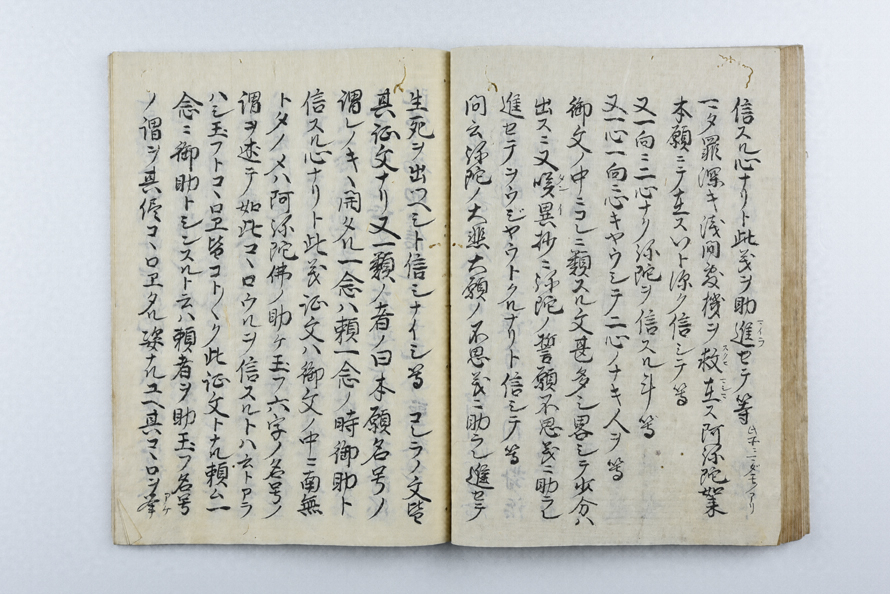 信スル心ナリト此義ヲ助進セテ等
一タ罪深キ浅間敷機ヲ救在ス阿弥陀如来
本願ニテ在スソト深ク信シテ等
又一向ニ二心ナク弥陀ヲ信スル斗等
又一心一向ニ心キヤウシテ二心ノナキ人ヲ等
御文ノ中ニコレニ類スル文甚多シ畧シテ少分ハ
出スニ又嘆異抄ニ弥陀ノ誓願不思義ニ助ラレ
進セテヲウジヤウトクルナリト信シテ等
問云弥陀ノ大悲大願ノ不思義ニ助ラレ進セテ
生死ヲ出ヘシト信シナイシ等 コレラノ文皆
其証文ナリ又一類ノ者ノ曰本願名号ノ
謂レノキヽ開タル一念ハ頼一念ノ時御助ト
信スル心ナリト此義証文ハ御文ノ中ニ南無
トタノメハ阿弥陀佛ノ助ケ玉フ六字ノ名号ノ
謂ヲ述テ如此コヽロウルヲ信スルトハ云トアラ
ハシ玉フトコヽロヱ皆コト〱ク此証文トナル頼ム一
念ニ御助トシンスルト云ハ頼者ヲ助玉フ名号
ノ謂ヲ其侭コヽロヱタル姿ナルユヘ其コヽロヲ挙